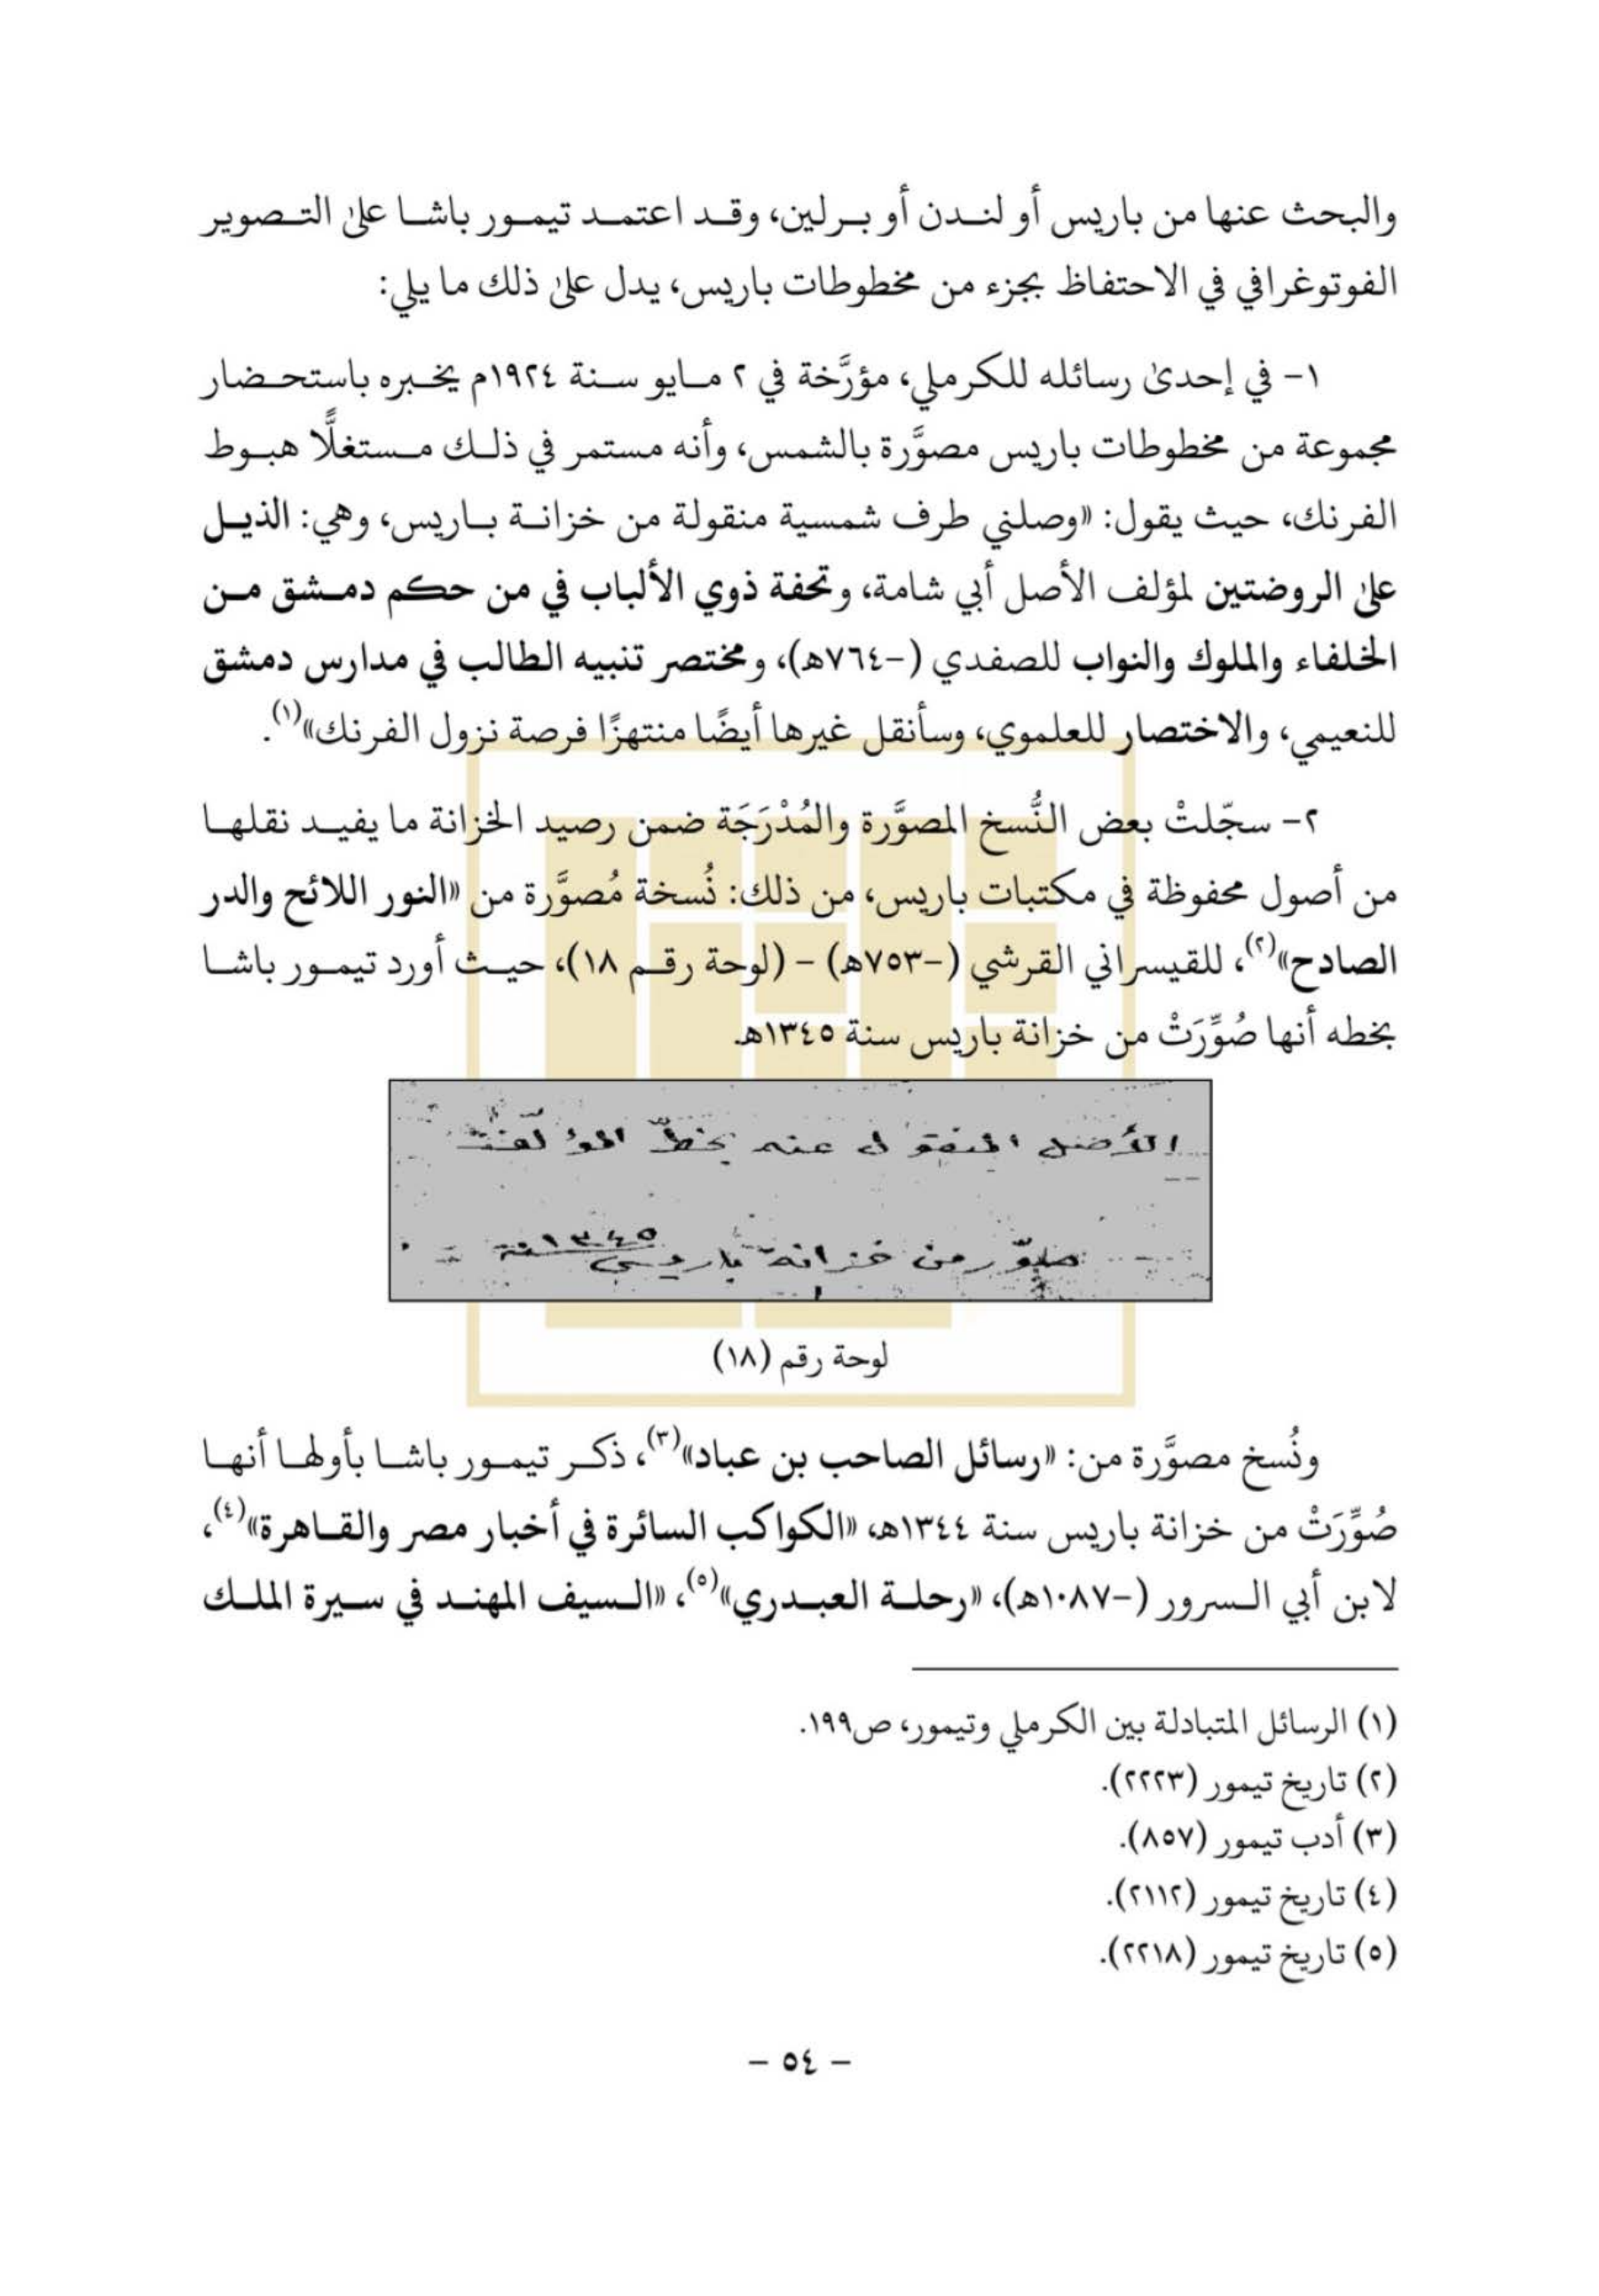 والبحث عنها من باريس أو لندن أو برلين، وقد اعتمد تيمور باشا على التصوير
الفوتوغرافي في الاحتفاظ بجزء من مخطوطات باريس، يدل على ذلك ما يلي:
١- في إحدى رسائله للكرملي، مؤرَّخة في ٢ مايو سنة ١٩٢٤م يخبره باستحضار
مجموعة من مخطوطات باريس مصوَّرة بالشمس، وأنه مستمر في ذلك مستغلًّا هبوط
الفرنك، حيث يقول: «وصلني طرف شمسية منقولة من خزانة باريس، وهي: الذيل
على الروضتين لمؤلف الأصل أبي شامة، وتحفة ذوي الألباب في من حكم دمشق من
الخلفاء والملوك والنواب للصفدي (-٧٦٤هـ)، ومختصر تنبيه الطالب في مدارس دمشق
للنعيمي، والاختصار للعلموي، وسأنقل غيرها أيضًا منتهزًا فرصة نزول الفرنك»(١).
٢- سجّلتْ بعض النُّسخ المصوَّرة والمُدْرَجَة ضمن رصيد الخزانة ما يفيد نقلها
من أصول محفوظة في مكتبات باريس، من ذلك: نُسخة مُصوَّرة من «النور اللائح والدر
الصادح»(٢)، للقيسراني القرشي (-٧٥٣هـ) - (لوحة رقم ١٨)، حيث أورد تيمور باشا
بخطه أنها صُوِّرَتْ من خزانة باريس سنة ١٣٤٥هـ.
الأصل المنقول عنه بخطّ المؤلف
صوّر من خزانة باريس سنة ١٣٤٥
لوحة رقم (١٨)
ونُسخ مصوَّرة من: «رسائل الصاحب بن عباد»(٣)، ذكر تيمور باشا بأولها أنها
صُوِّرَتْ من خزانة باريس سنة ١٣٤٤هـ، «الكواكب السائرة في أخبار مصر والقاهرة»(٤)،
لابن أبي السرور (-١٠٨٧هـ)، «رحلة العبدري»(٥)، «السيف المهند في سيرة الملك
(١) الرسائل المتبادلة بين الكرملي وتيمور، ص١٩٩.
(٢) تاريخ تيمور (٢٢٢٣).
(٣) أدب تيمور (٨٥٧).
(٤) تاريخ تيمور (٢١١٢).
(٥) تاريخ تيمور (٢٢١٨).
- ٥٤ -